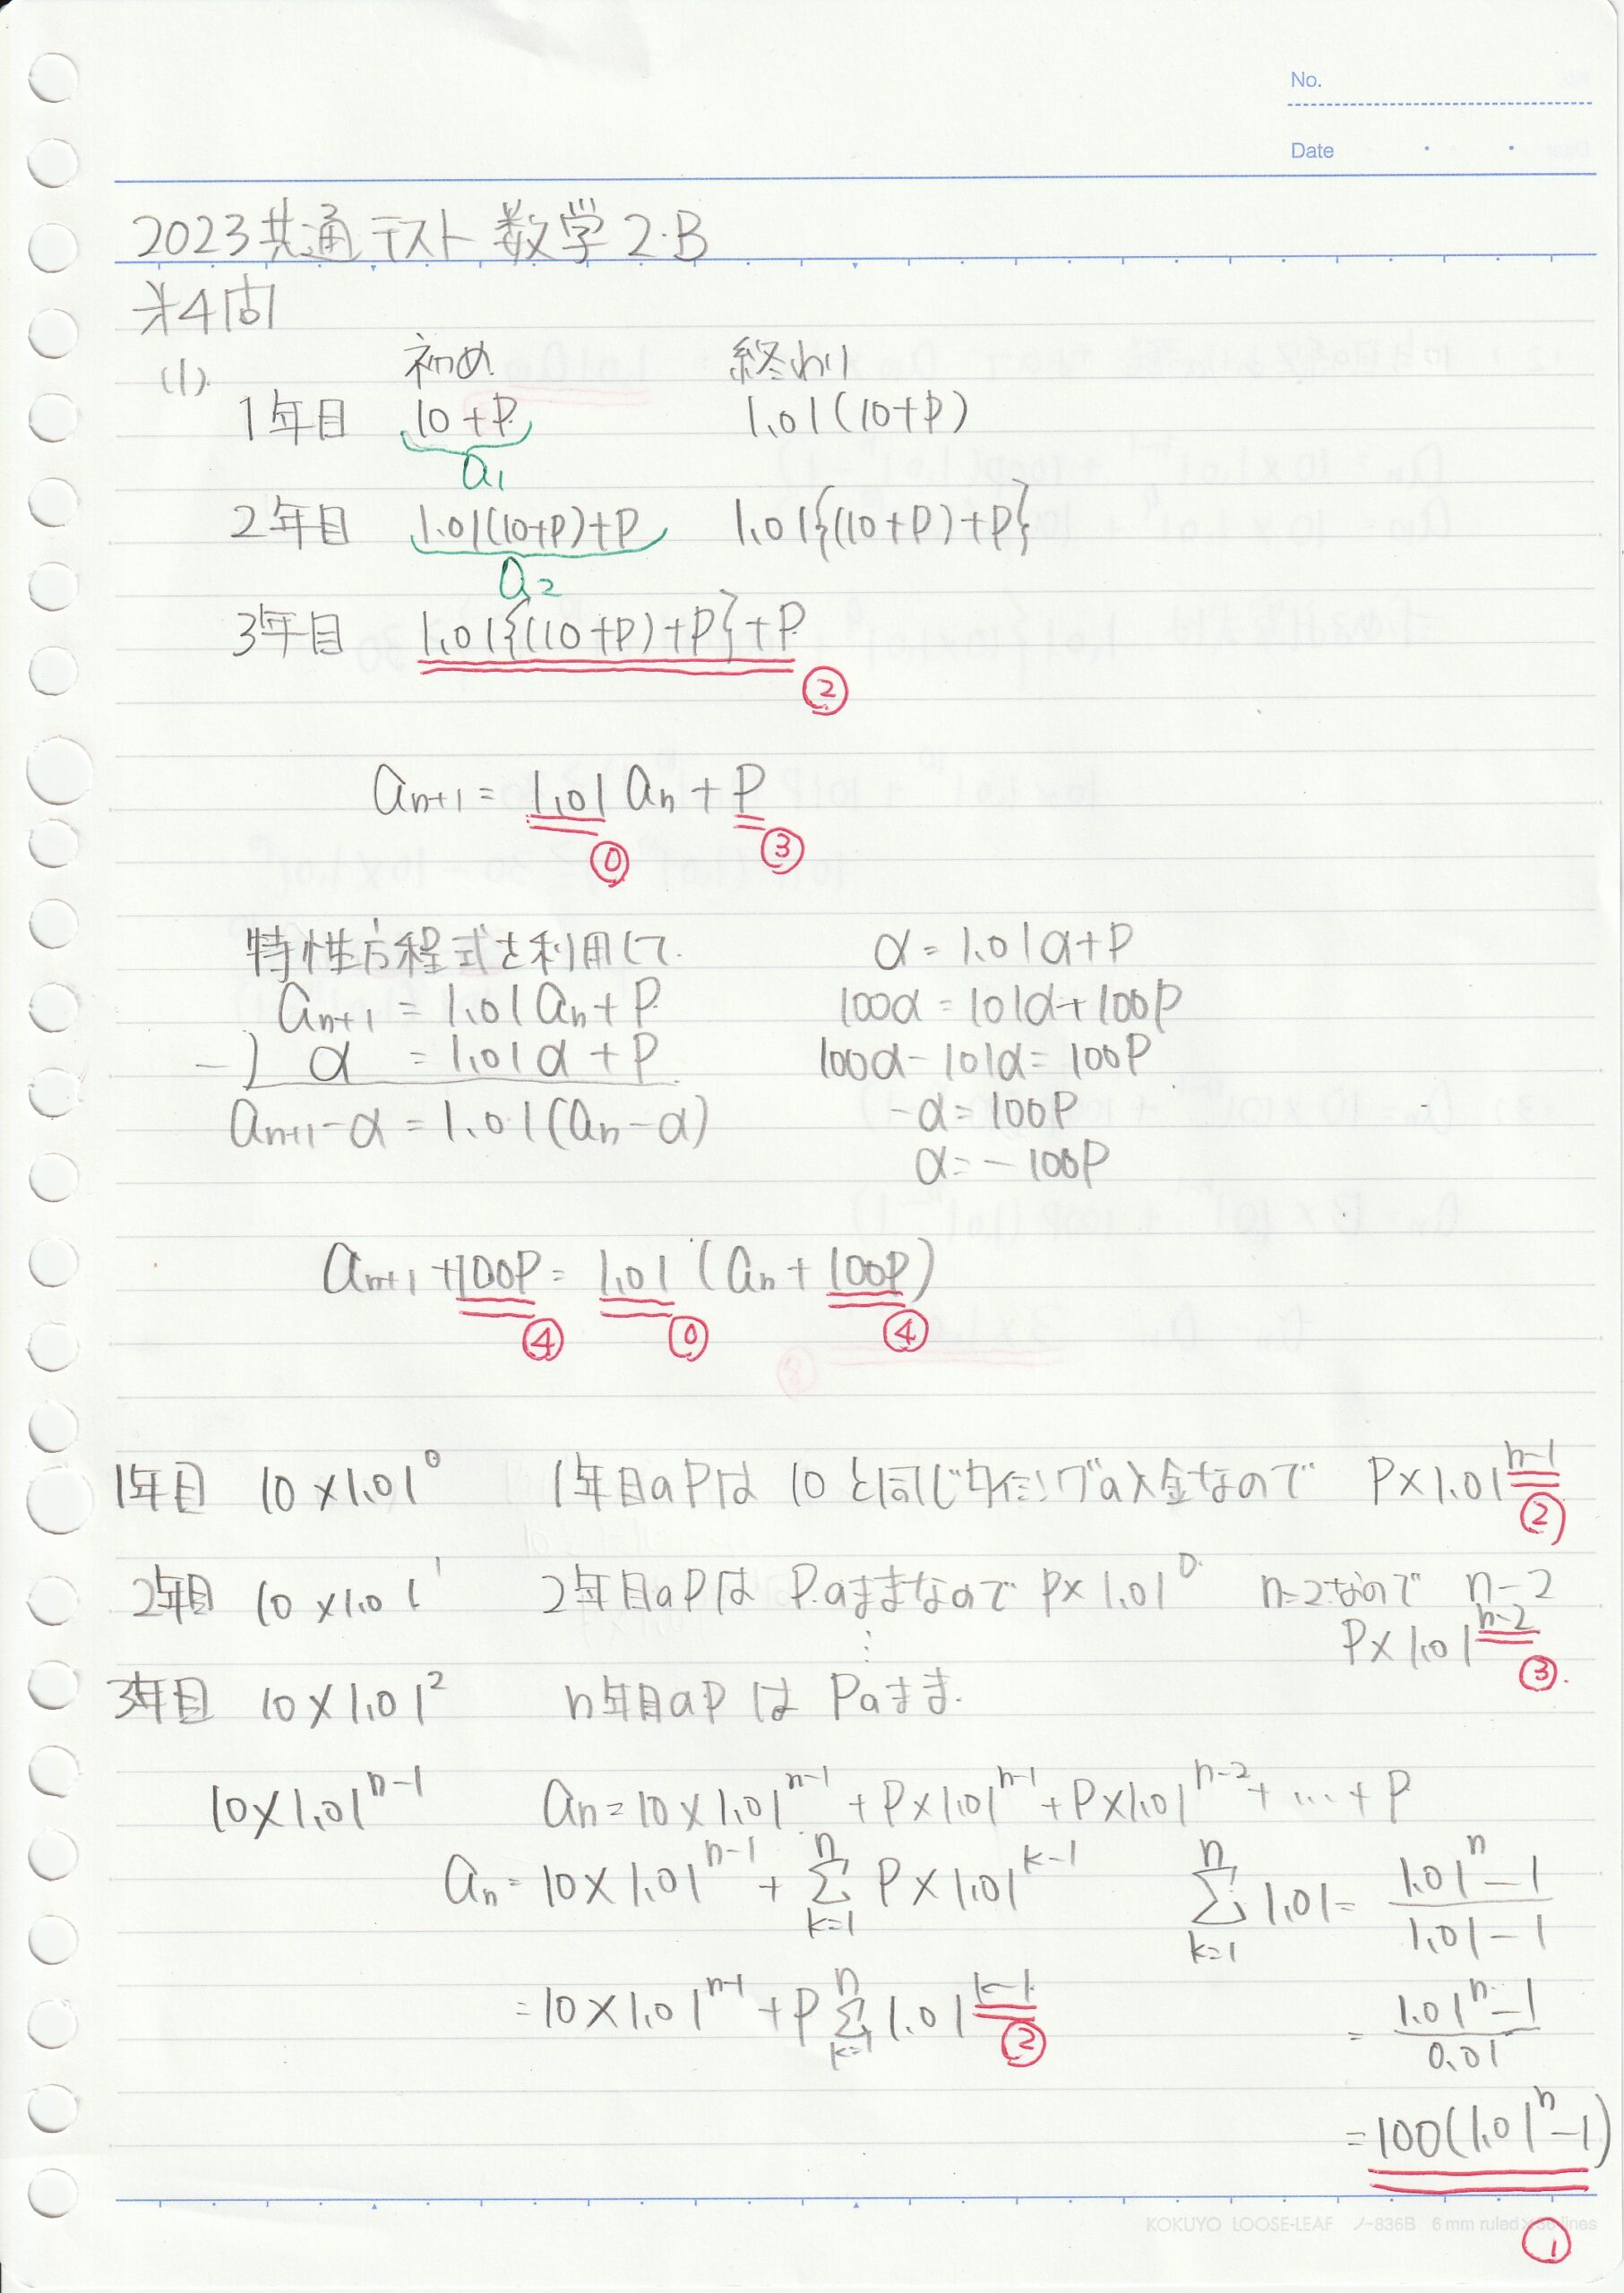 No.
Date
2023共通テスト 数学2・B
第4問
(1). 初め 終わり
1年目 10+P 1.01(10+P)
a₁
2年目 1.01(10+P)+P 1.01{(10+P)+P}
a₂
3年目 1.01{(10+P)+P}+P
②
aₙ₊₁ = 1.01 aₙ + P
⓪ ③
特性方程式を利用して α = 1.01α+P
aₙ₊₁ = 1.01aₙ + P 100α = 101α+100P
-) α = 1.01α + P 100α - 101α = 100P
aₙ₊₁ - α = 1.01(aₙ - α) -α = 100P
α = -100P
aₙ₊₁ + 100P = 1.01 (aₙ + 100P)
④ ⓪ ④
1年目 10×1.01⁰ 1年目のPは 10と同じタイミングの入金なので P×1.01ⁿ⁻¹
②
2年目 10×1.01¹ 2年目のPは Pのままなので P×1.01⁰ n=2なので n-2
⋮ P×1.01ⁿ⁻²
③
3年目 10×1.01² n年目のPは Pのまま
10×1.01ⁿ⁻¹ aₙ = 10×1.01ⁿ⁻¹ + P×1.01ⁿ⁻¹ + P×1.01ⁿ⁻² + … + P
aₙ = 10×1.01ⁿ⁻¹ + Σ[k=1→n] P×1.01ᵏ⁻¹ Σ[k=1→n] 1.01 = (1.01ⁿ-1)/(1.01-1)
= 10×1.01ⁿ⁻¹ + P Σ[k=1→n] 1.01ᵏ⁻¹ = (1.01ⁿ-1)/0.01
②
= 100(1.01ⁿ-1)
①
KOKUYO LOOSE-LEAF ノ-836B 6 mm ruled×36 lines